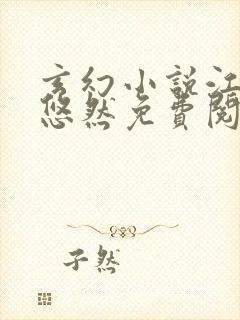 玄幻小说江
悠然免費閱
孑然